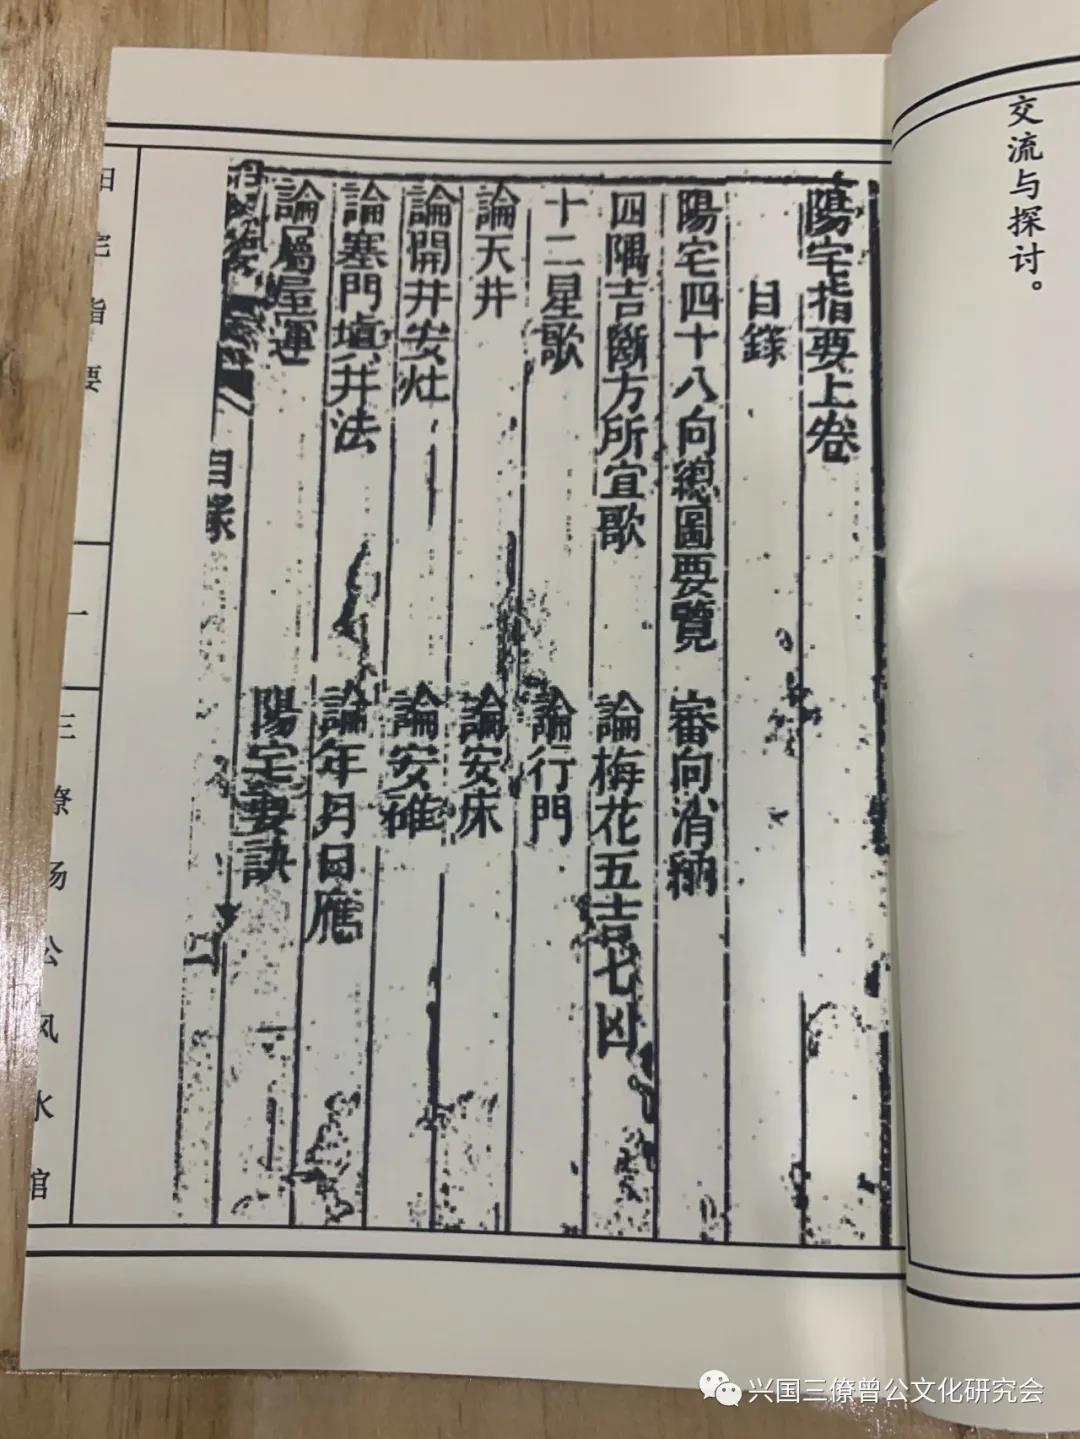 交流与探讨。
陽宅指要上卷
目錄
陽宅四十八向總圖要覽 審向消納
四隅吉斷方所宜歌 論梅花五吉七凶
十二星歌 論行門
論天井 論安床
論開井安灶 論安碓
論塞門填井法 論年月日應
論屬屋運 陽宅要訣
目錄
阳宅指要
一
三僚杨公风水馆
兴国三僚曾公文化研究会